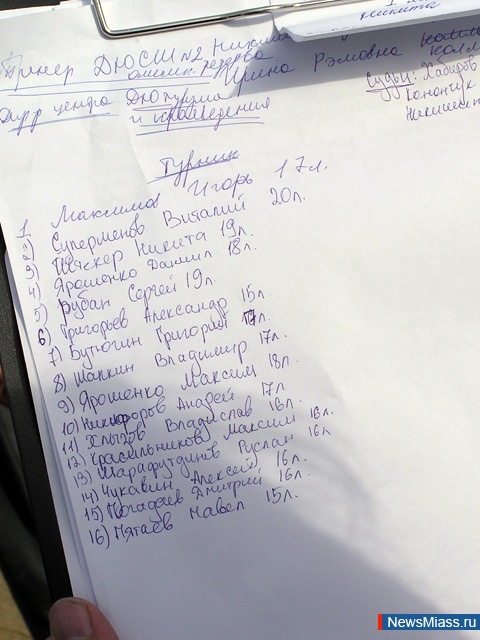 Никита
Тренер ДЮСШ №2 Никита
олимп. резерва Ирина Рэмовна
Дирр центра ДЮтуризма
и краеведения
Судьи: Хабиров
Турник
1 Максимов Игорь 17л.
2) Суперменов Виталий 20л.
3) Никита 19л.
4) Ярошенко Даниил 18л.
5) Рубан Сергей 19л.
6) Григорьев Александр 15л.
7) Бутюгин Григорий 17л.
8) Шапкин Владимир 17л.
9) Ярошенко Максим 18л.
10) Никифоров Андрей 17л
11) Хлызов Владислав 16л.
12) Красильников Максим 16л.
13) Марафутдинов Руслан 16л
14) Чукавин Алексей 16л.
15) Дмитрий 16л.
16) Мятаев Павел 15л.
NewsMiass.ru